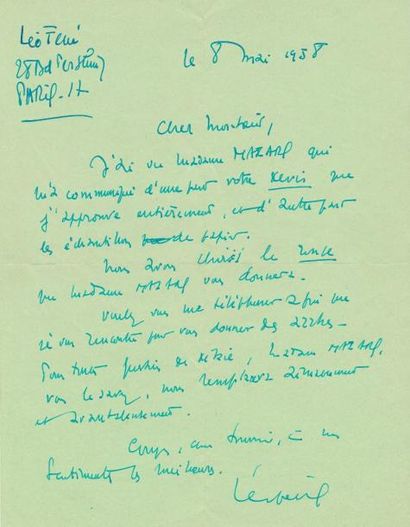 Léo Ferré
28 Bd Pershing
PARIS - 17
le 8 mai 1958
Cher Monsieur,
J'ai vu Madame MAZARS qui
m'a communiqué d'une part votre devis que
j'approuve entièrement, et d'autre part
les échantillons de papier.
Nous avons choisi le rouge
que Madame MAZARS vous donnera.
Voulez vous me téléphoner afin que
je vous rencontre pour vous donner des
Pour toutes questions de Madame MAZARS,
vous le savez, nous remplacera
et avantageusement.
Croyez, cher Monsieur, à mes
sentiments les meilleurs.
Léo Ferré